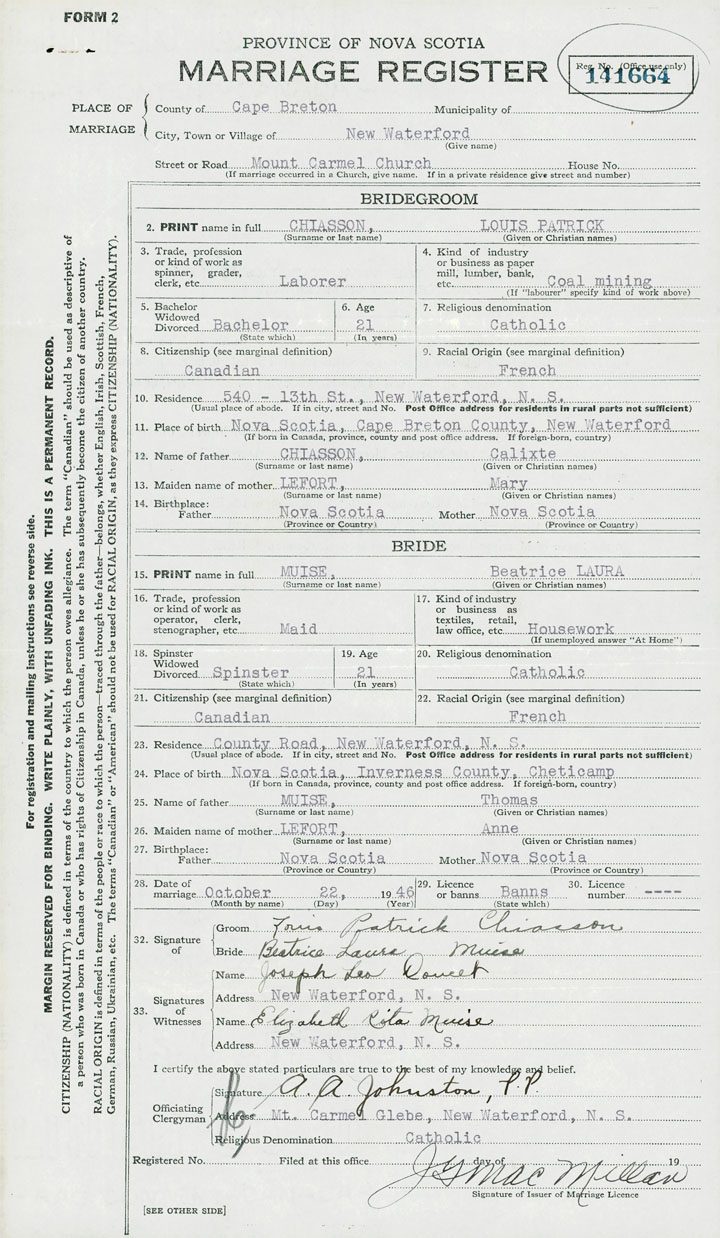 FORM 2
PROVINCE OF NOVA SCOTIA
MARRIAGE REGISTER
Reg. No. (Office use only)
141664
PLACE OF MARRIAGE
County of Cape Breton Municipality of
City, Town or Village of New Waterford
(Give name)
Street or Road Mount Carmel Church House No.
(If marriage occurred in a Church, give name. If in a private residence give street and number)
BRIDEGROOM
2. PRINT name in full CHIASSON, LOUIS PATRICK
(Surname or last name) (Given or Christian names)
3. Trade, profession
or kind of work as
spinner, grader,
clerk, etc. Laborer
4. Kind of industry
or business as paper
mill, lumber, bank,
etc. Coal mining
(If "labourer" specify kind of work above)
5. Bachelor
Widowed
Divorced Bachelor
(State which)
6. Age
21
(In years)
7. Religious denomination
Catholic
8. Citizenship (see marginal definition)
Canadian
9. Racial Origin (see marginal definition)
French
10. Residence 540 - 13th St., New Waterford, N. S.
(Usual place of abode. If in city, street and No. Post Office address for residents in rural parts not sufficient)
11. Place of birth Nova Scotia, Cape Breton County, New Waterford
(If born in Canada, province, county and post office address. If foreign-born, country)
12. Name of father CHIASSON, Calixte
(Surname or last name) (Given or Christian names)
13. Maiden name of mother LEFORT, Mary
(Surname or last name) (Given or Christian names)
14. Birthplace:
Father Nova Scotia Mother Nova Scotia
(Province or Country) (Province or Country)
BRIDE
15. PRINT name in full MUISE, Beatrice LAURA
(Surname or last name) (Given or Christian names)
16. Trade, profession
or kind of work as
operator, clerk,
stenographer, etc. Maid
17. Kind of industry
or business as
textiles, retail,
law office, etc. Housework
(If unemployed answer "At Home")
18. Spinster
Widowed
Divorced Spinster
(State which)
19. Age
21
(In years)
20. Religious denomination
Catholic
21. Citizenship (see marginal definition)
Canadian
22. Racial Origin (see marginal definition)
French
23. Residence County Road, New Waterford, N. S.
(Usual place of abode. If in city, street and No. Post Office address for residents in rural parts not sufficient)
24. Place of birth Nova Scotia, Inverness County, Cheticamp
(If born in Canada, province, county and post office address. If foreign-born, country)
25. Name of father MUISE, Thomas
(Surname or last name) (Given or Christian names)
26. Maiden name of mother LEFORT, Anne
(Surname or last name) (Given or Christian names)
27. Birthplace:
Father Nova Scotia Mother Nova Scotia
(Province or Country) (Province or Country)
28. Date of
marriage October 22, 1946
(Month by name) (Day) (Year)
29. Licence
or banns Banns
(State which)
30. Licence
number ----
32. Signature of
Groom Louis Patrick Chiasson
Bride Beatrice Laura Muise
33. Signatures of Witnesses
Name Joseph Leo Doucet
Address New Waterford, N. S.
Name Elizabeth Rita Muise
Address New Waterford, N. S.
I certify the above stated particulars are true to the best of my knowledge and belief.
Officiating Clergyman
Signature A. A. Johnston, P.P.
Address Mt. Carmel Glebe, New Waterford, N. S.
Religious Denomination Catholic
Registered No. Filed at this office day of 19
J G MacMillan
Signature of Issuer of Marriage Licence
[SEE OTHER SIDE]
For registration and mailing instructions see reverse side.
MARGIN RESERVED FOR BINDING. WRITE PLAINLY, WITH UNFADING INK. THIS IS A PERMANENT RECORD.
CITIZENSHIP (NATIONALITY) is defined in terms of the country to which the person owes allegiance. The term "Canadian" should be used as descriptive of
a person who was born in Canada or who has rights of Citizenship in Canada, unless he or she has subsequently become the citizen of another country.
RACIAL ORIGIN is defined in terms of the people or race to which the person—traced through the father—belongs, whether English, Irish, Scottish, French,
German, Russian, Ukrainian, etc. The terms "Canadian" or "American" should not be used for RACIAL ORIGIN, as they express CITIZENSHIP (NATIONALITY).